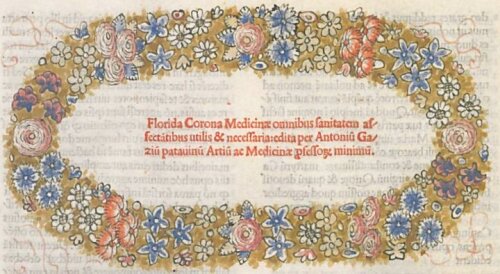 Florida Corona Medicinæ omnibus sanitatem af-
fectãtibus utilis & necessaria: edita per Antoniũ Ga
ziũ patauinũ Artiũ ac Medicinæ ꝓfessoꝝ minimũ.